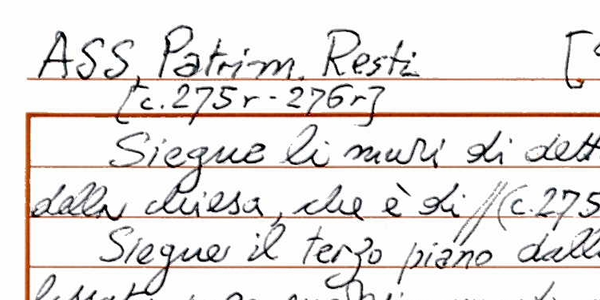 ASS, Patrim. Resti [
[c.275r-276r]
Siegue li muri di dett
dalla chiesa, che è di //(c.275
Siegue il terzo piano dall